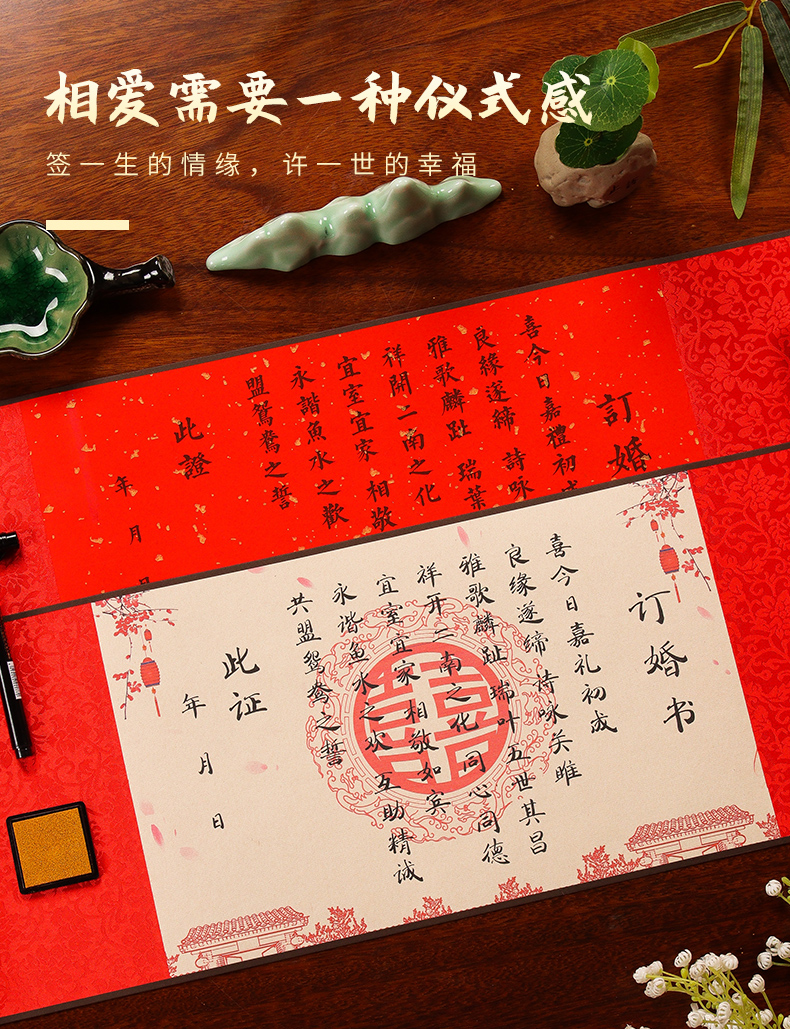 相爱需要一种仪式感
签一生的情缘，许一世的幸福
訂婚
喜今日嘉禮初成
良緣遂締 詩咏
雅歌麟趾 瑞葉
祥開二南之化
宜室宜家 相敬
永諧魚水之歡
盟鴛鴦之誓
此證
年 月 日
订婚书
喜今日嘉礼初成
良缘遂缔 诗咏关雎
雅歌麟趾 瑞叶五世其昌
祥开二南之化 同心同德
宜室宜家 相敬如宾
永谐鱼水之欢 互助精诚
共盟鸳鸯之誓
此证
年 月 日